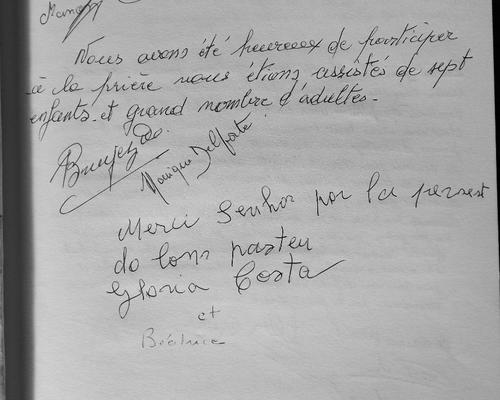 Nous avons été heureux de participer
à la prière nous étions assistés de sept
enfants et grand nombre d'adultes.
Monique Delforte
Merci Senhor por la
do lons pasteu
Gloria Costa
et
Béatrice